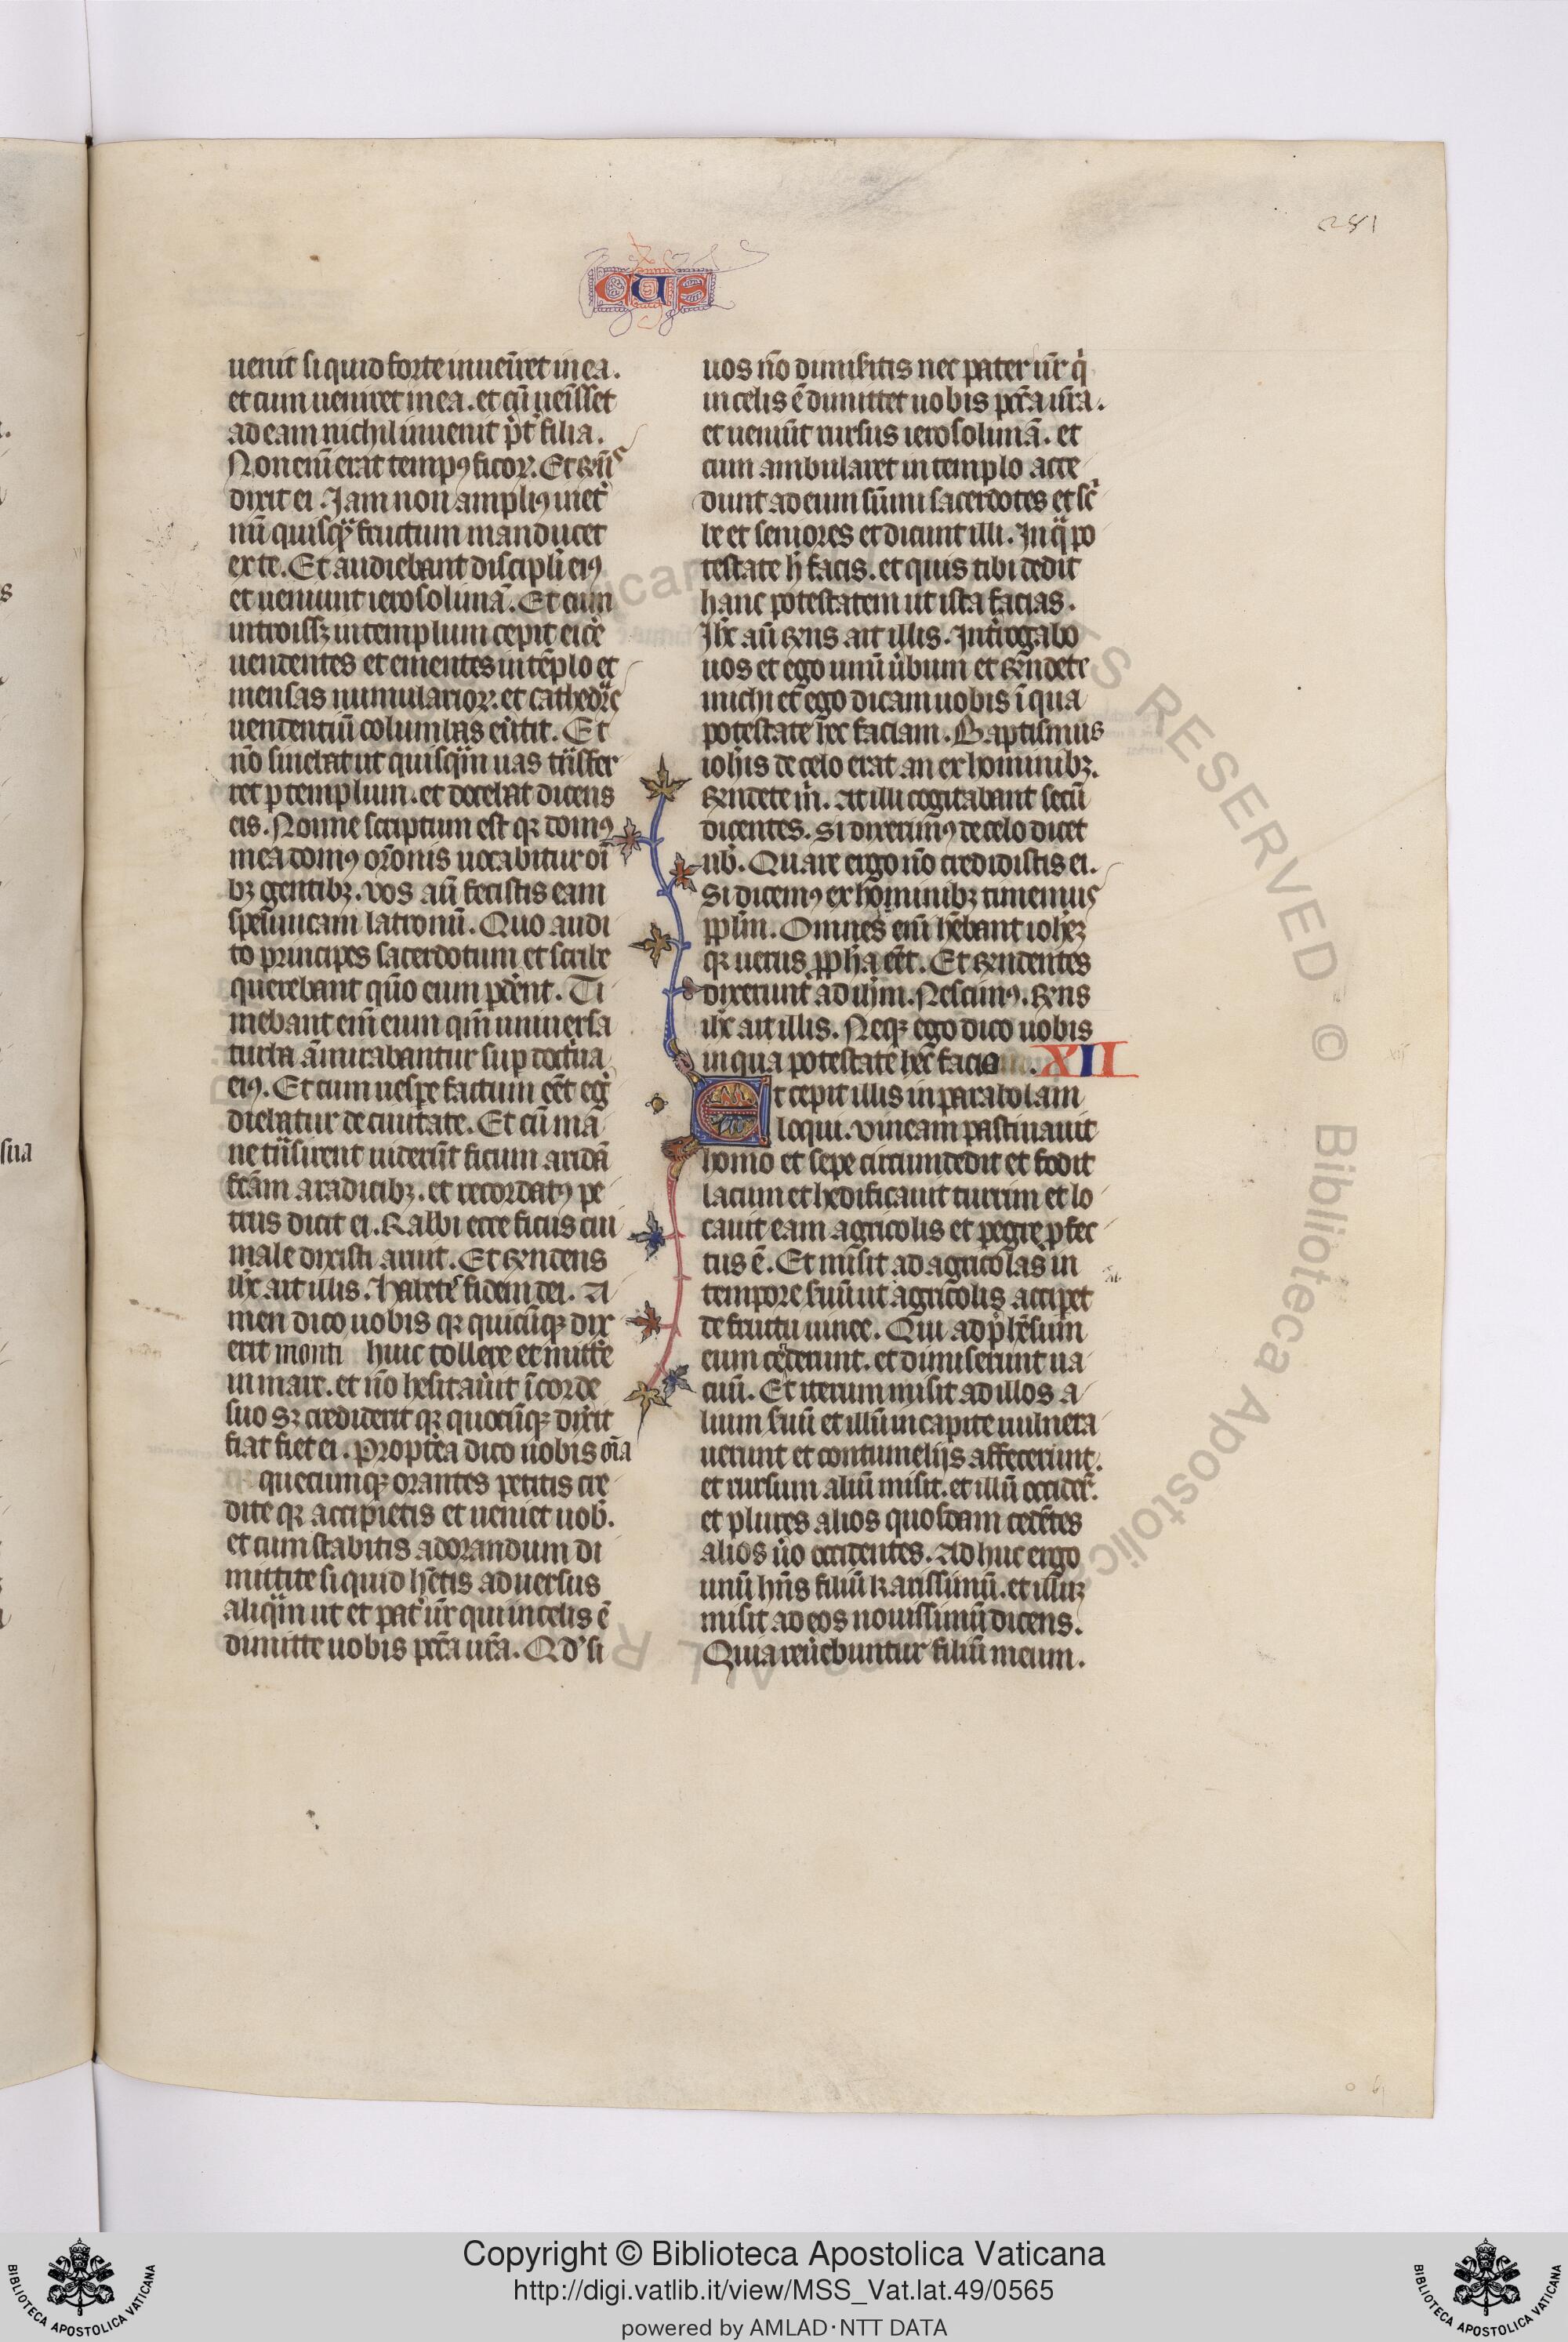 281
cus
uenit si quid forte inueñret in ea.
et cum ueniret in ea. et cū ueīsset
ad eam nichil inuenit p̄t filia.
Non eni᷑ erat tempꝰ ficoꝝ. Et
dixit ei. Jam non ampliꝰ inet̄
nū quisq̄ꝫ fructum manducet
ex te. Et audiebant discipl̄i eiꝰ
et ueniunt ierosolimā. Et cum
introissꝫ in templum cepit eice᷑
uendentes et ementes in tēplo et
mensas numularioꝝ. et cathedr̄c
uendentiū columbas eu᷑tit. Et
nō sinebat ut quisq̄m uas tͣnsfer
ret ꝑ templum. et docebat dicens
eis. Nonne scriptum est qꝛ domꝰ
mea domꝰ or̄onis uocabitur oī
bꝫ gentibꝫ. vos aū fecistis eam
spelūncam latronū. Quo audi
to principes sacerdotum et scribe
querebant qūo eum ꝑde᷑nt. Ti
mebant eni᷑ eum qm̄ uniuersa
turba āmirabantur suꝑ doct᷑na
eiꝰ. Et cum uesꝑe factum eēt eg̓
diebatur de ciuitate. Et cū mā
ne tͣnsirent uider̄ut ficum aridā
fc̄am a radicibꝫ. et recordatꝰ pe
trus dicit ei. Rabbi ecce ficus cui
male dixisti aruit. Et r̄ndens
ih̄c ait illis. Habete fidem dei. A
men dico uobis qꝛ quicūqꝫ dix
erit monti huic tollere et mitte᷑
in mare. et nō hesitaūit ī corde
suo sꝫ crediderit qꝛ quocūqꝫ dix̄it
fiat fiet ei. Propt̄ea dico uobis om̄ia
quecunqꝫ orantes petitis cre
dite qꝛ accipietis et ueniet uob̄.
et cum stabitis ad orandum di
mittite si quid hētis aduersus
aliq̄m ut et pat᷑ ur̄ qui in celis ē
dimitte uobis pc̄c̄a ur̄a. Qd̓ si
uos nō dimisitis nec pater ur̄ q̇
in celis ē dimittet uobis pc̄c̄a ur̄a.
et ueniūt rursus ierosolimā. et
cum ambularet in templo acce
dunt ad eum sūmi sacerdotes et sc̓
be et seniores et dicunt illi. In qͣ po
testate h̄ facis. et quis tibi dedit
hanc potestatem ut ista facias.
Ih̄c aū r̄ns ait illis. Int̓rogabo
uos et ego unū u᷑bum et r̄ndete
michi et ego dicam uobis ī qua
potestate hec faciam. Baptismus
ioh̄is de celo erat an ex hominibꝫ.
r̄ndete m̄. At illi cogitabant secū
dicentes. Si dixerimꝰ de celo dicet
nb̄. Quare ergo nō credidistis ei.
Si dicemꝰ ex hominibꝫ timemus
ppl̄m. Omnes eni᷑ hēbant ioh̄eꝫ
qꝛ uerus ꝓph̄a eēt. Et r̄ndentes
dixerunt ad ih̄m. Nescimꝰ. r̄ns
ih̄c ait illis. Neqꝫ ego dico uobis
in qua potestate hec facia . XII
Et cepit illis in parabolam
loqui. vineam pastinauit
homo et sepe circumdedit et fodit
lacum et hedificauit turrim et lo
cauit eam agricolis et ꝑegre ꝓfec
tus ē. Et misit ad agricolas in
tempore suū ut agricolis acciꝑet
de fructu uinee. Qui adp̄hēsum
eum ceciderunt. et dimiserunt ua
cuū. Et iterum misit ad illos a
lium suū et illū in capite uulnera
uerunt et contumelijs affecerunt.
et rursum aliū misit. et illū occideꝝ.
et plures alios quosdam cedētes
alios u᷑o occidentes. Adhuc ergo
unū hn̄s filiū karissimū. et illuꝫ
misit ad eos nouissimū dicens.
Quia reu᷑ebuntur filiū meum.
sua
Copyright © Biblioteca Apostolica Vaticana
http://digi.vatlib.it/view/MSS_Vat.lat.49/0565
powered by AMLAD·NTT DATA